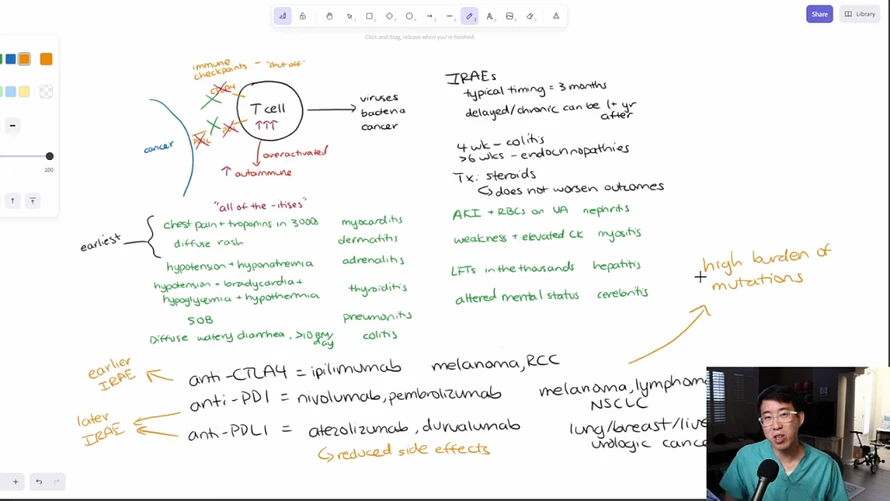 Share
Library
Click and drag, release when you're finished
immune
checkpoints - "shut off"
CTLA4
T cell
↑↑↑
viruses
bacteria
cancer
cancer
overactivated
↑ autoimmune
IRAEs
typical timing = 3 months
delayed/chronic can be 1+ yr
after
4 wk - colitis
>6 wks - endocrinopathies
Tx: steroids
↳ does not worsen outcomes
"all of the -itises"
earliest
chest pain + troponins in 3000s myocarditis
diffuse rash dermatitis
hypotension + hyponatremia adrenalitis
hypotension + bradycardia +
hypoglycemia + hypothermia thyroiditis
SOB pneumonitis
Diffuse watery diarrhea, >10 BM/day colitis
AKI + RBCs on UA nephritis
weakness + elevated CK myositis
LFTs in the thousands hepatitis
altered mental status cerebritis
high burden of
mutations
earlier
IRAE
anti-CTLA4 = ipilimumab melanoma, RCC
later
IRAE
anti-PD1 = nivolumab, pembrolizumab melanoma, lymphoma
NSCLC
anti-PDL1 = atezolizumab, durvalumab lung/breast/live
urologic cance
↳ reduced side effects
100